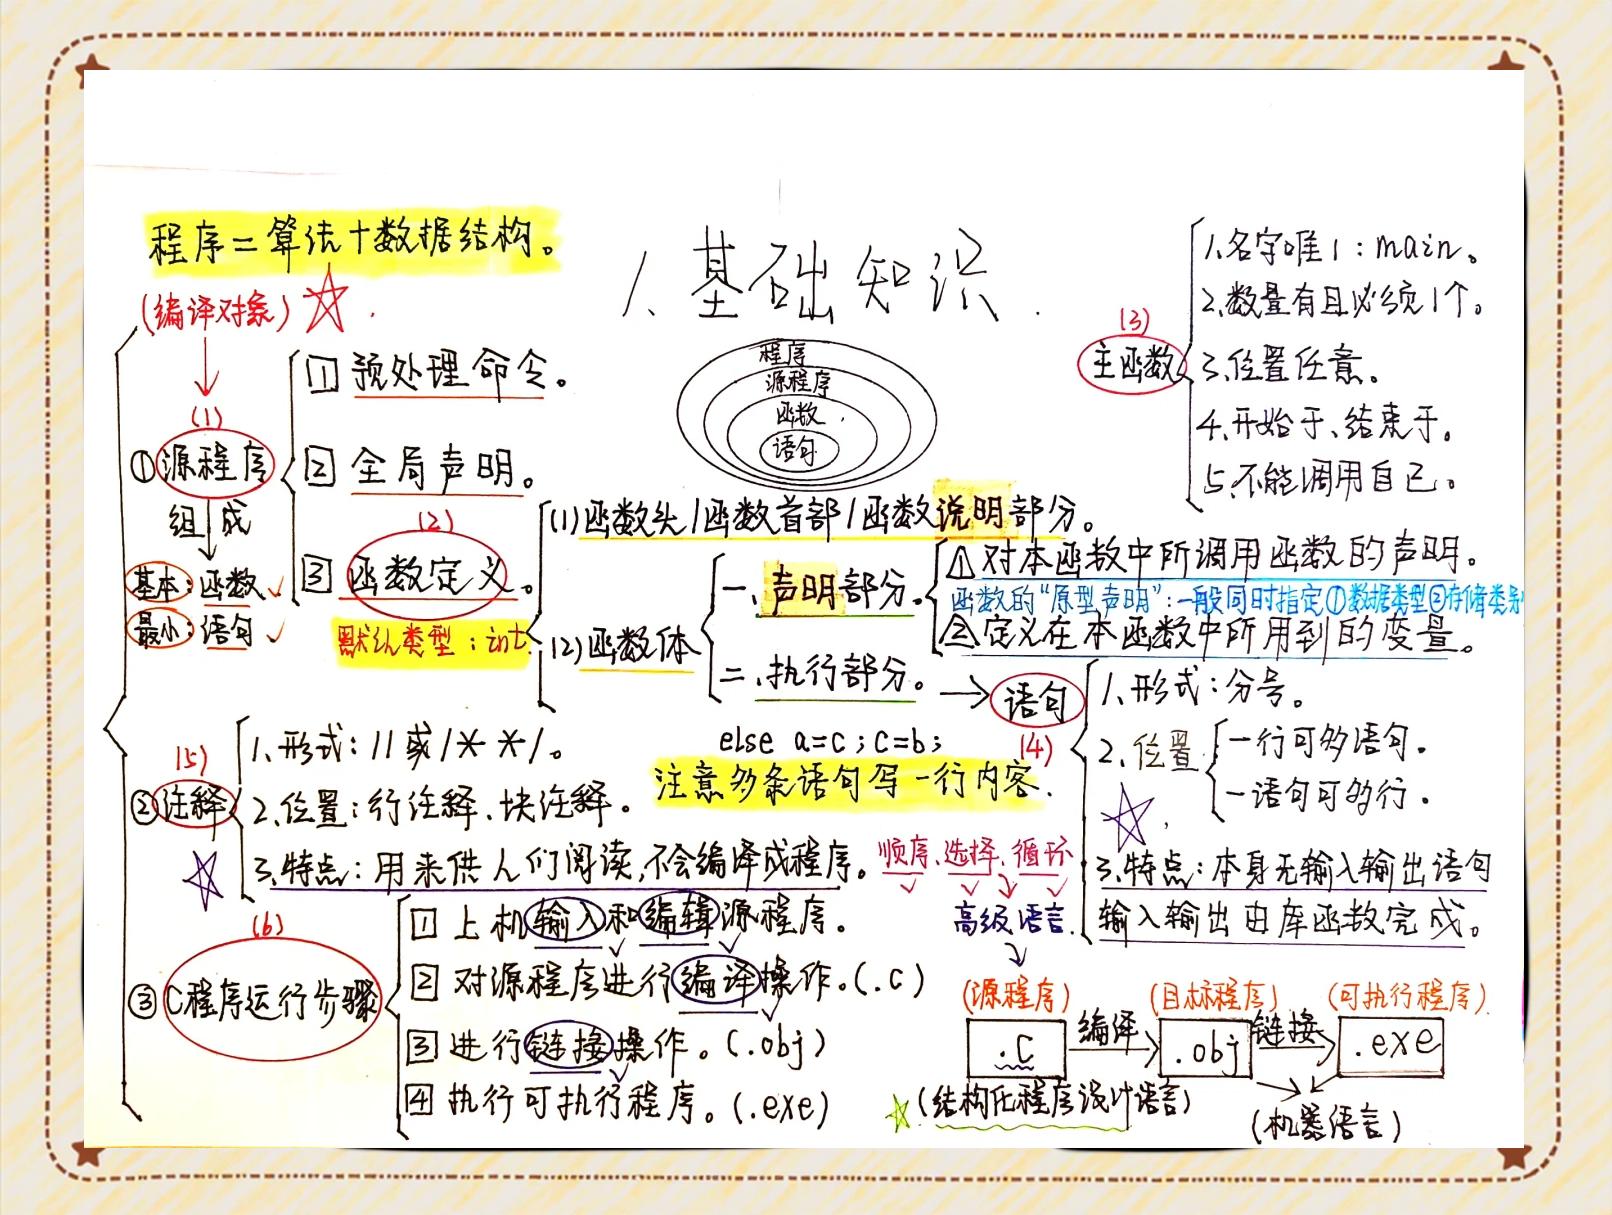 程序=算法+数据结构。
(编译对象)
1、基础知识
程序
源程序
函数
语句
(3)
主函数
1、名字唯1:main。
2、数量有且必须1个。
3、位置任意。
4、开始于、结束于。
5、不能调用自己。
(1)
①源程序
组成
基本:函数
最小:语句
1 预处理命令。
2 全局声明。
(2)
3 函数定义。
默认类型:int
(1)函数头/函数首部/函数说明部分。
(2)函数体
一、声明部分。
①对本函数中所调用函数的声明。
函数的“原型声明”:一般同时指定①数据类型②存储类别
②定义在本函数中所用到的变量。
二、执行部分。
语句
(4)
1、形式:分号。
2、位置
一行可多语句。
一语句可多行。
3、特点:本身无输入输出语句
输入输出由库函数完成。
else a=c;c=b;
注意多条语句写一行内容.
(5)
②注释
1、形式://或/* */。
2、位置:行注释、块注释。
3、特点:用来供人们阅读,不会编译成程序。
顺序、选择、循环
高级语言
(6)
③C程序运行步骤
1 上机输入和编辑源程序。
2 对源程序进行编译操作。(.c)
3 进行链接操作。(.obj)
4 执行可执行程序。(.exe)
(源程序) (目标程序) (可执行程序)
.c 编译 .obj 链接 .exe
(结构化程序设计语言)
(机器语言)